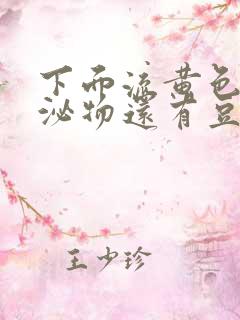 下面流黄色
泌物还有豆
王少珍